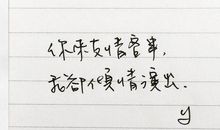 你来友情客串,
我却倾情演出.
y